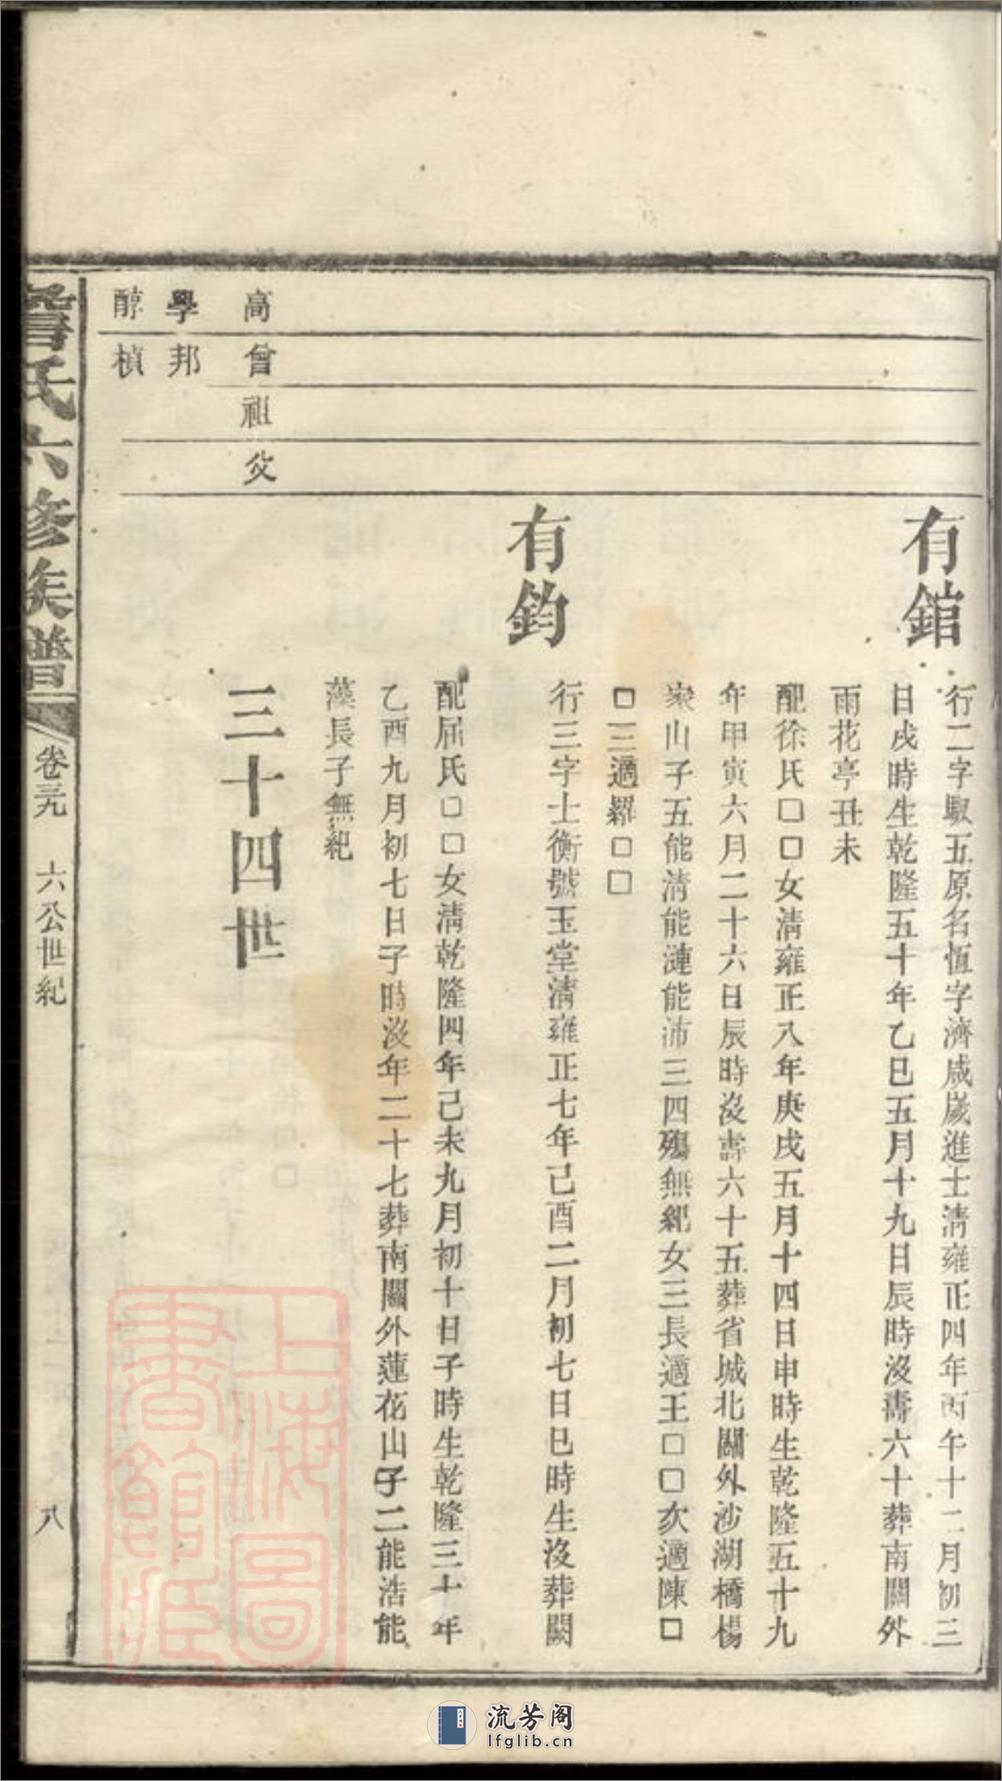 有錧
行二字馭五原名恆字濟咸歲進士淸雍正四年丙午十二月初三
日戌時生乾隆五十年乙巳五月十九日辰時沒壽六十葬南關外
雨花亭丑未
配徐氏□□女淸雍正八年庚戌五月十四日申時生乾隆五十九
年甲寅六月二十六日辰時沒壽六十五葬省城北關外沙湖橋楊
家山子五能淸能漣能沛三四殤無紀女三長適王□□次適陳□
□三適羅□□
有鈞
行三字士衡號玉堂淸雍正七年己酉二月初七日巳時生沒葬闕
配屈氏□□女淸乾隆四年己未九月初十日子時生乾隆三十年
乙酉九月初七日子時沒年二十七葬南關外蓮花山子二能浩能
藻長子無紀
三十四世
高曾祖父
學邦
醇楨
詹氏六修族譜
卷三九 六公世紀
八
上海圖書館藏
流芳阁
lfglib.cn